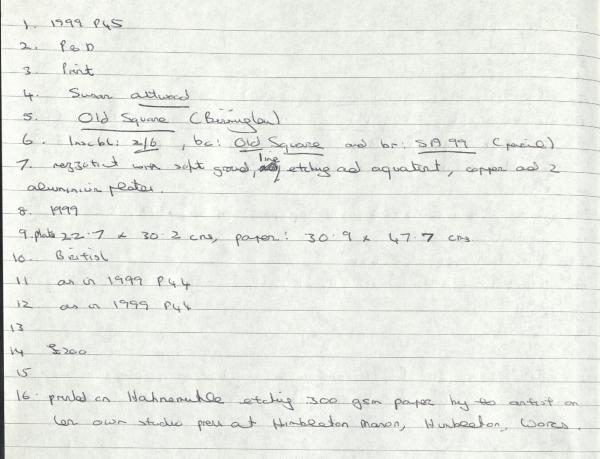 1. 1999 P45
2. P&D
3. Print
4. Susan Attwood
5. Old Square (Birmingham)
6. Insc bl: 2/6, bc: Old Square and br: SA 99 (pencil)
7. mezzotint with soft ground, line etching and aquatint, copper and 2
aluminium plates.
8. 1999
9. plate 22.7 x 30.2 cms, paper: 30.9 x 47.7 cms
10. British
11 as in 1999 P44
12 as in 1999 P44
13
14 £200
15
16. printed on Hahnemuhle etching 300 gsm paper by the artist on
her own studio press at Himbleton Manor, Himbleton, Worcs.